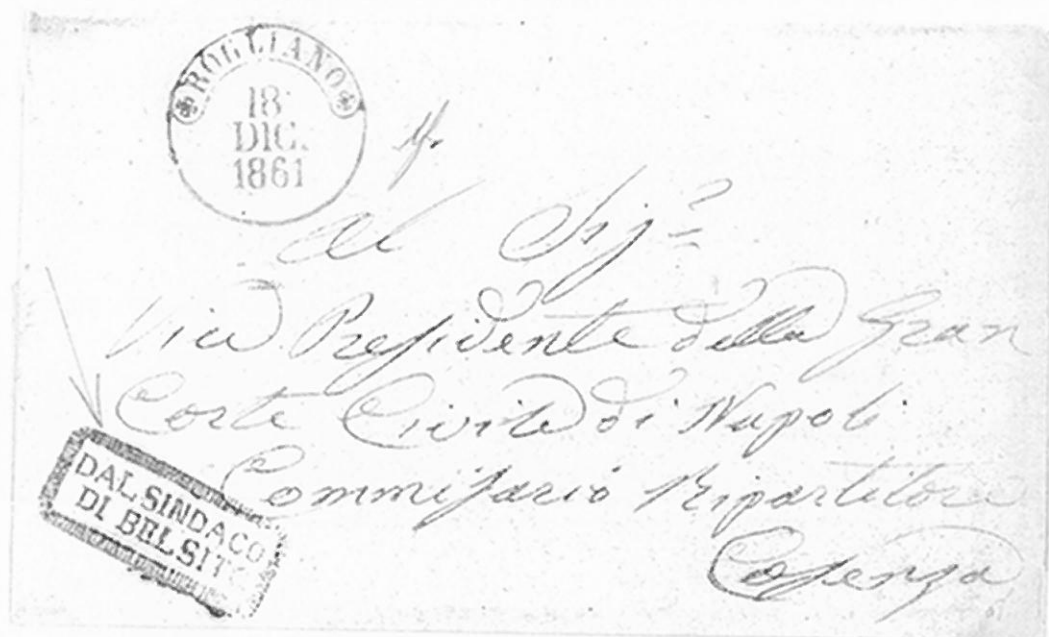 ROGLIANO
18
DIC.
1861
Al Sigr
Vice Presidente della Gran
Corte Civile di Napoli
Commissario Ripartitore
Cosenza
DAL SINDACO
DI BELSITO